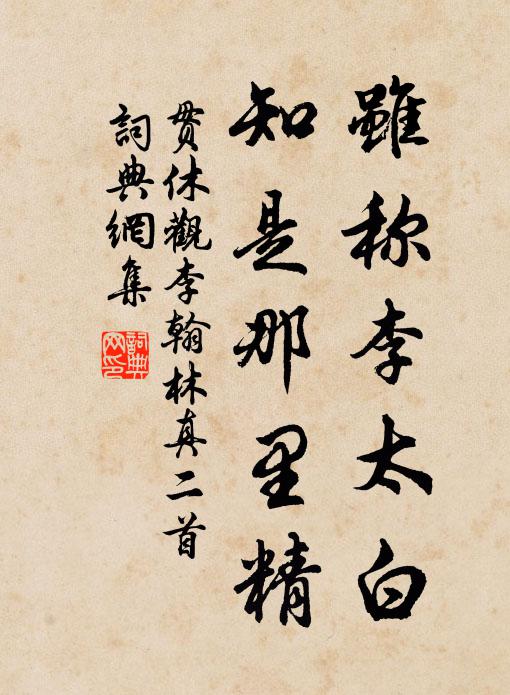 雖称李太白
知是那里精
贯休觀李翰林真二首
詞典網集
詞典
网印